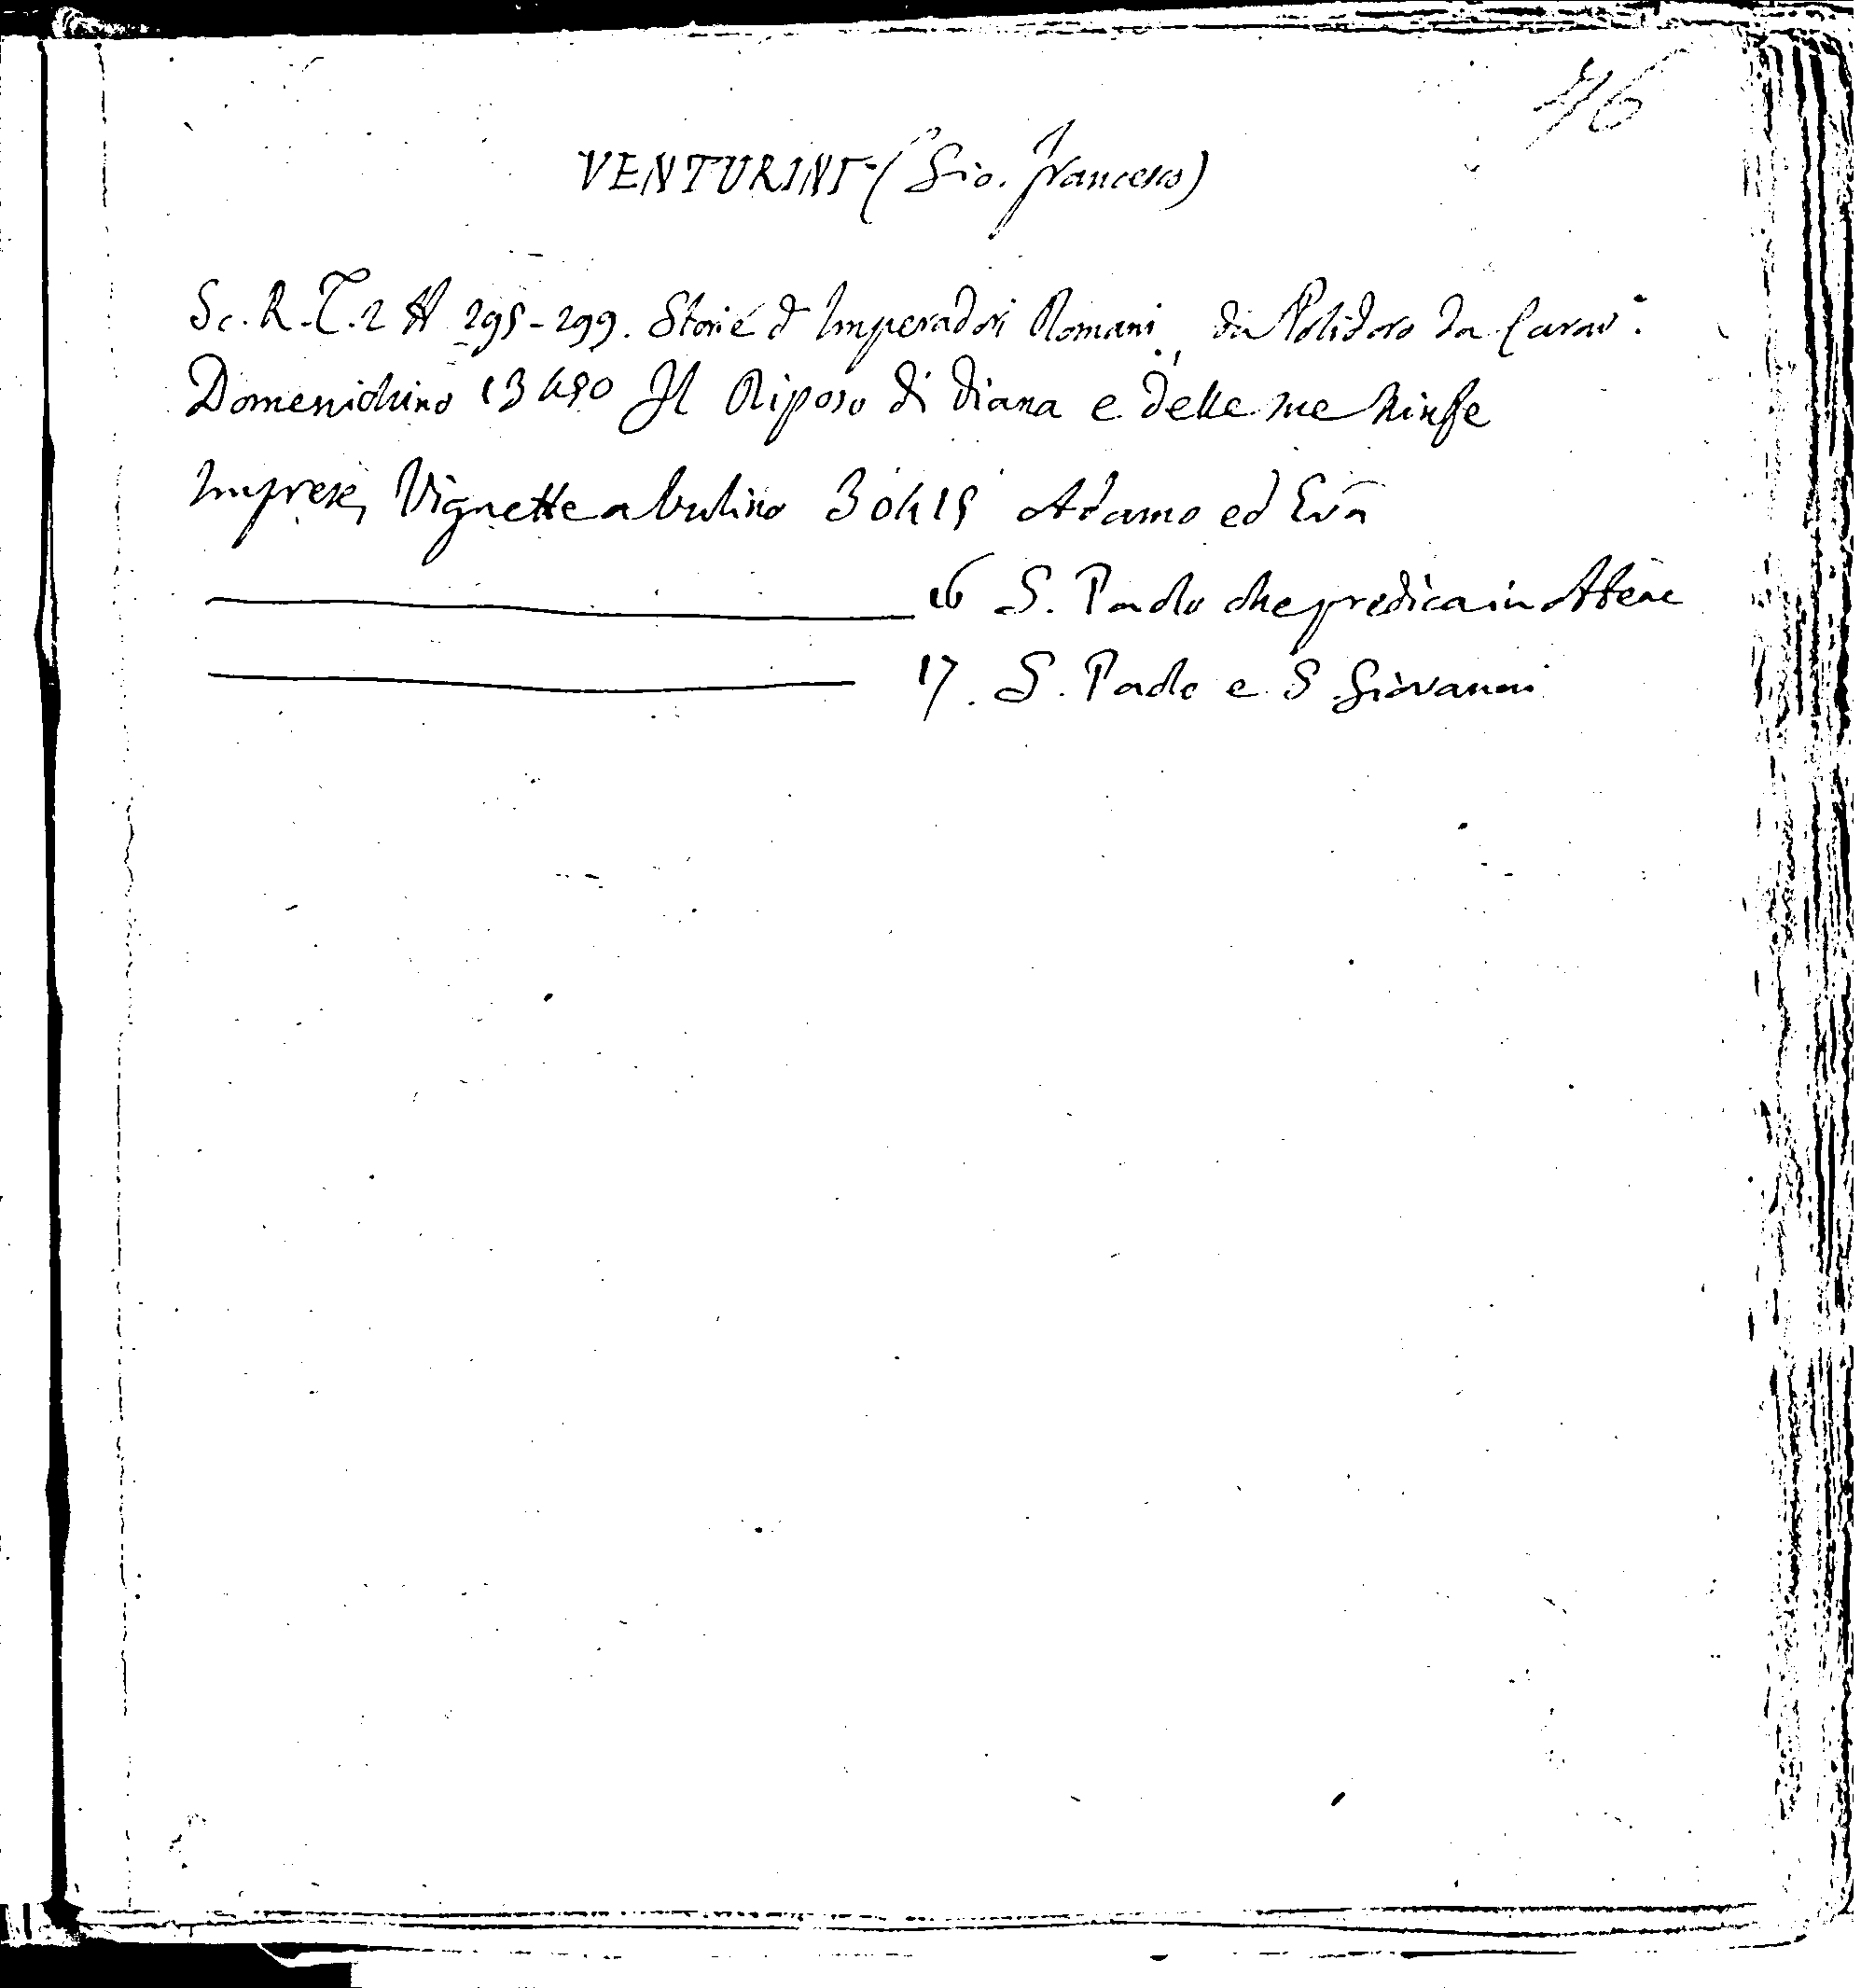 76
VENTURINI (Gio. Francesco)
Sc. R. T. 2 # 295-299. Storie d Imperadori Romani, da Polidoro da Carav:
Domenichino 13 # 50 Il Riposo di Diana e delle sue Ninfe
Imprese, Vignette a bulino 30 # 15 Adamo ed Eva
16 S. Paolo che predica in Atene
17. S. Paolo e S Giovanni